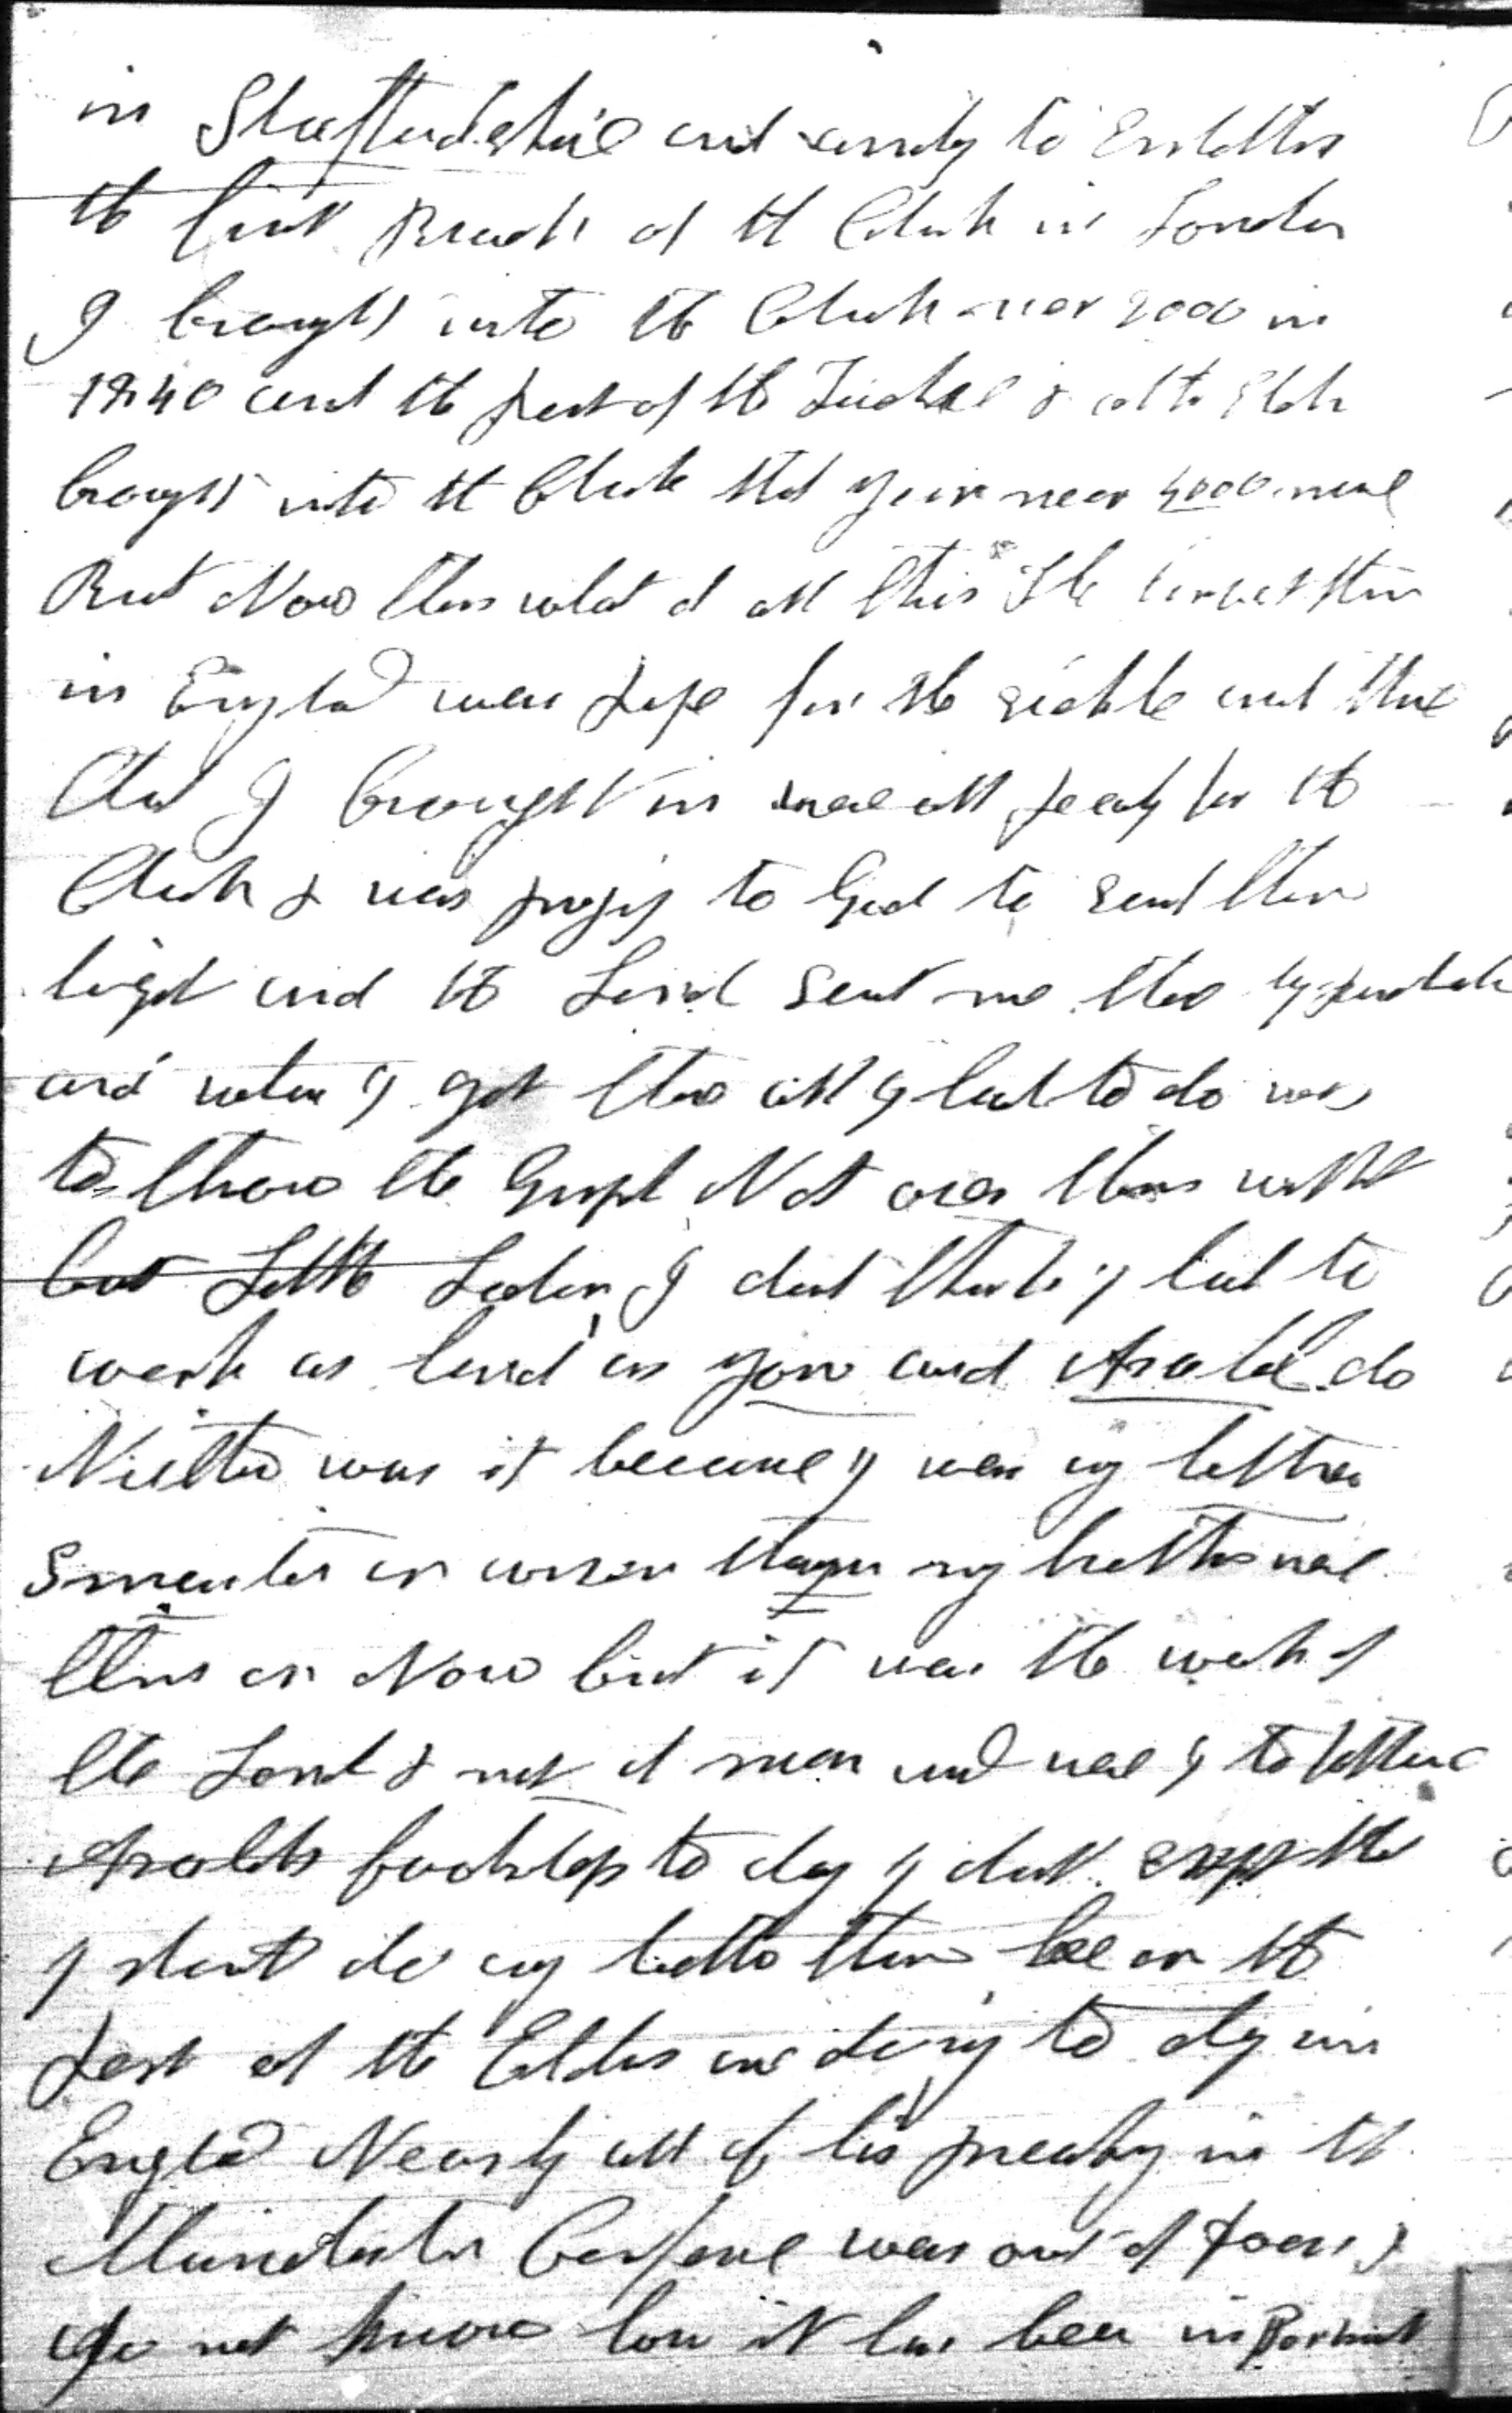 in Staffordshire and according to Establish
the first Branch of the Church in London
I brought into the Church near 2000 in
1840 and the rest of the Twelve & all the Elders
brought into the Church that year near 4000 more
But Now then what of all this The
in England was ripe for the sickle and those
that I brought in were all ready for the
Church & was praying to God to send them
light and the Lord sent me there
and when I got there all I had to do was
to throw the Gospel Net over them with
but Little Labor I dont think I had to
work as hard as you and Asahel do
Neither was it because I was any better
Smarter or wiser than my brethren were
then or Now but it was the work of
the Lord & not of man and were I to follow
Asahels footsteps to day I dont expect that
I should do any better than he or the
rest of the Elders are doing to day in
England Nearly all of his preaching in the
Manchester Conference was out of doors I
do not know how it has been in